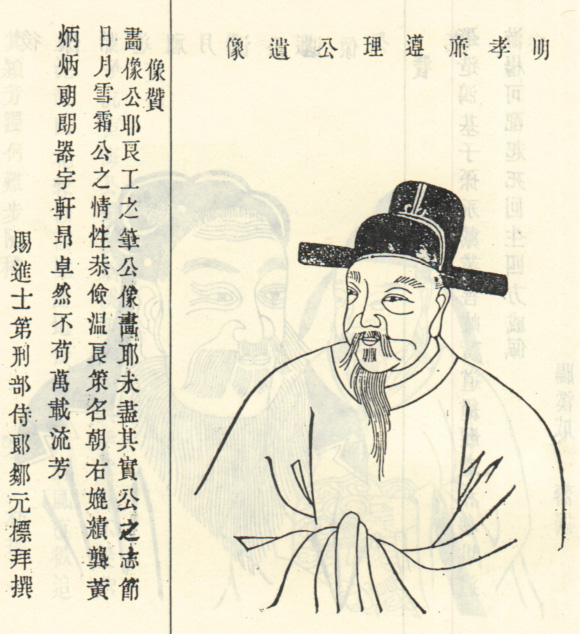 明孝廉遵理公遺像
像贊
畫像公耶良工之筆公像畫耶未盡其實公之志節
日月雪霜公之情性恭儉溫良策名朝右媲績龔黃
炳炳朗朗器宇軒昂卓然不苟萬載流芳
賜進士第刑部侍郎鄒元標拜撰